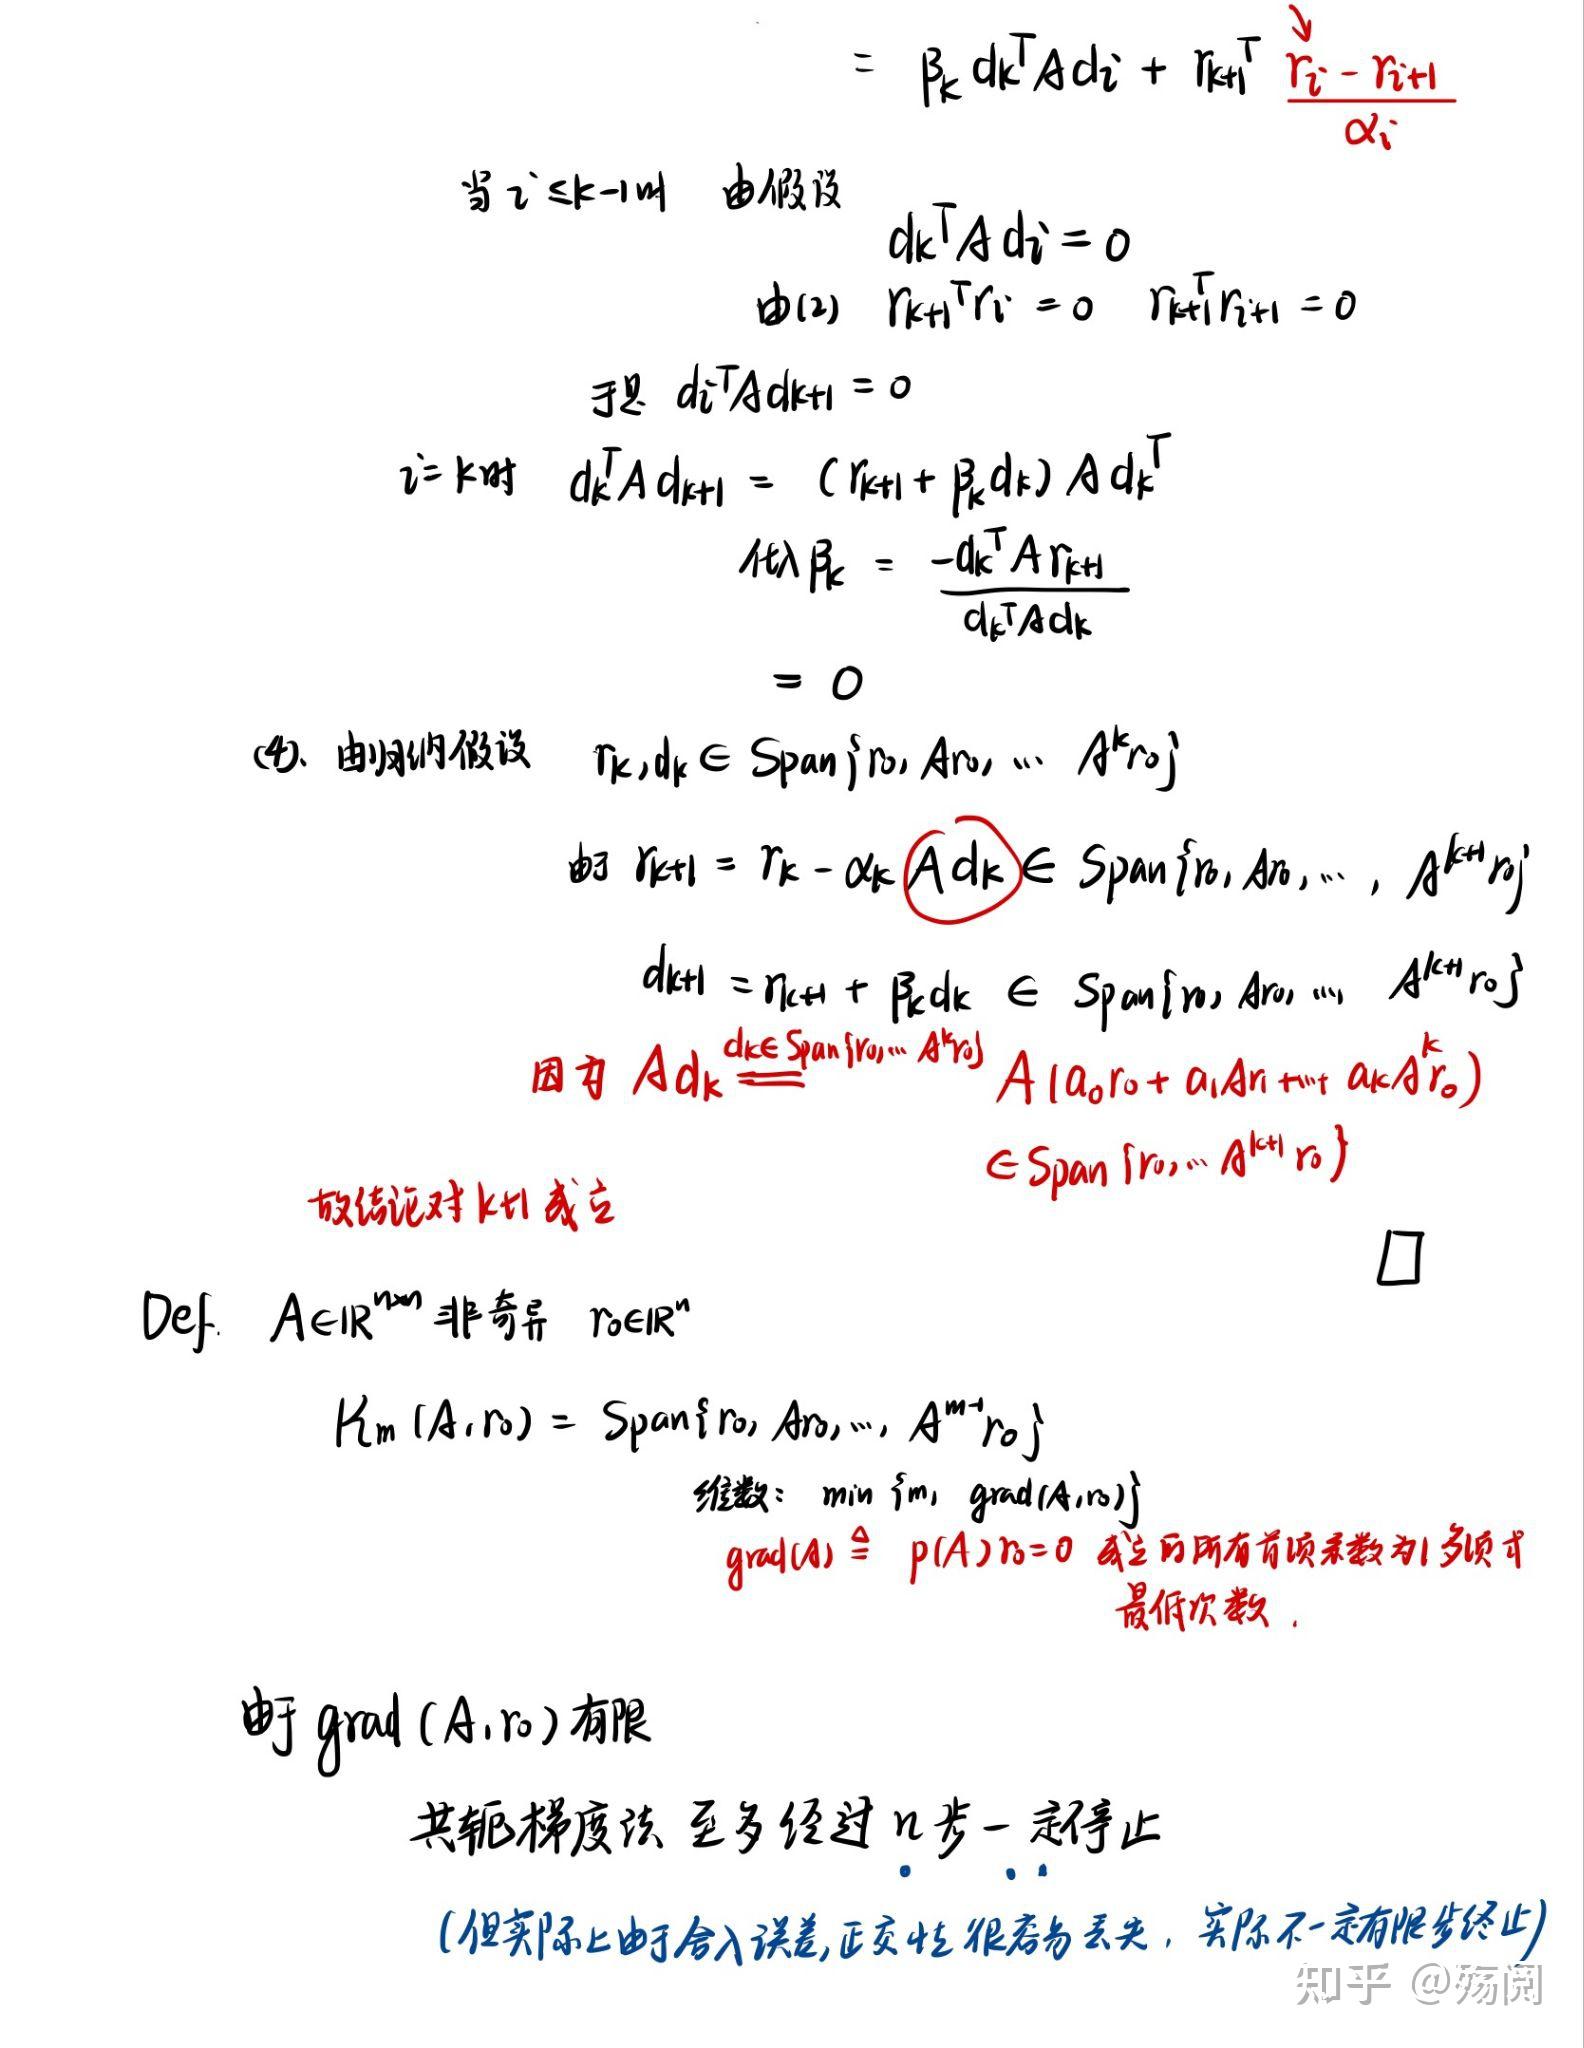 = βₖ dₖᵀAdᵢ + rₖ₊₁ᵀ (rᵢ - rᵢ₊₁)/αᵢ
当 i ≤ k-1 时 由假设
dₖᵀAdᵢ = 0
由(2) rₖ₊₁ᵀrᵢ = 0 rₖ₊₁ᵀrᵢ₊₁ = 0
于是 dᵢᵀAdₖ₊₁ = 0
i = k时 dₖᵀAdₖ₊₁ = (rₖ₊₁ + βₖdₖ) Adₖᵀ
代入 βₖ = -dₖᵀArₖ₊₁ / dₖᵀAdₖ
= 0
(4)、由归纳假设 rₖ, dₖ ∈ Span{r₀, Ar₀, … Aᵏr₀}
由于 rₖ₊₁ = rₖ - αₖ Adₖ ∈ Span{r₀, Ar₀, …, Aᵏ⁺¹r₀}
dₖ₊₁ = rₖ₊₁ + βₖdₖ ∈ Span{r₀, Ar₀, …, Aᵏ⁺¹r₀}
dₖ∈Span{r₀,… Aᵏr₀}
因为 Adₖ = A(a₀r₀ + a₁Ar₁ + … + aₖAᵏr₀)
∈ Span{r₀, … Aᵏ⁺¹r₀}
故结论对 k+1 成立
□
Def. A∈ℝⁿˣⁿ 非奇异 r₀∈ℝⁿ
Kₘ(A, r₀) = Span{r₀, Ar₀, …, Aᵐ⁻¹r₀}
维数: min {m, grad(A, r₀)}
grad(A) ≜ p(A)r₀=0 成立的所有首项系数为1多项式
最低次数.
由于 grad(A, r₀) 有限
共轭梯度法 至多经过 n步 一定停止
(但实际上由于舍入误差,正交性很容易丢失, 实际不一定有限步终止)
知乎 @殇阅